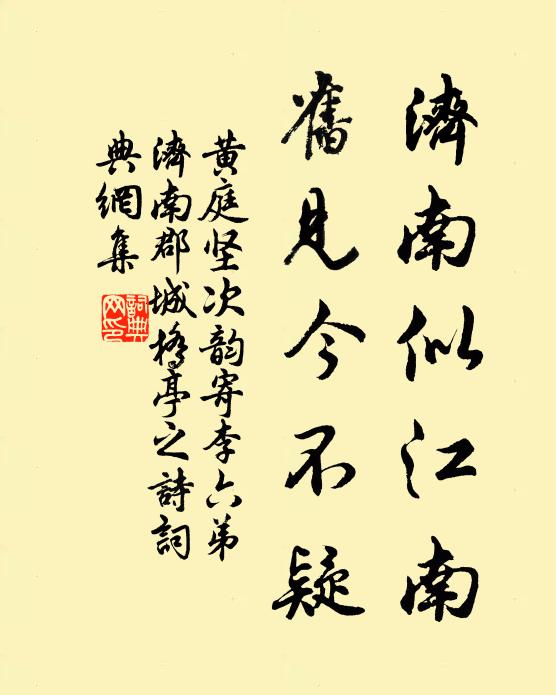 濟南似江南
舊見今不疑
黄庭坚次韵寄李六弟
濟南郡城橋亭之詩詞
典網集
詞典
网印